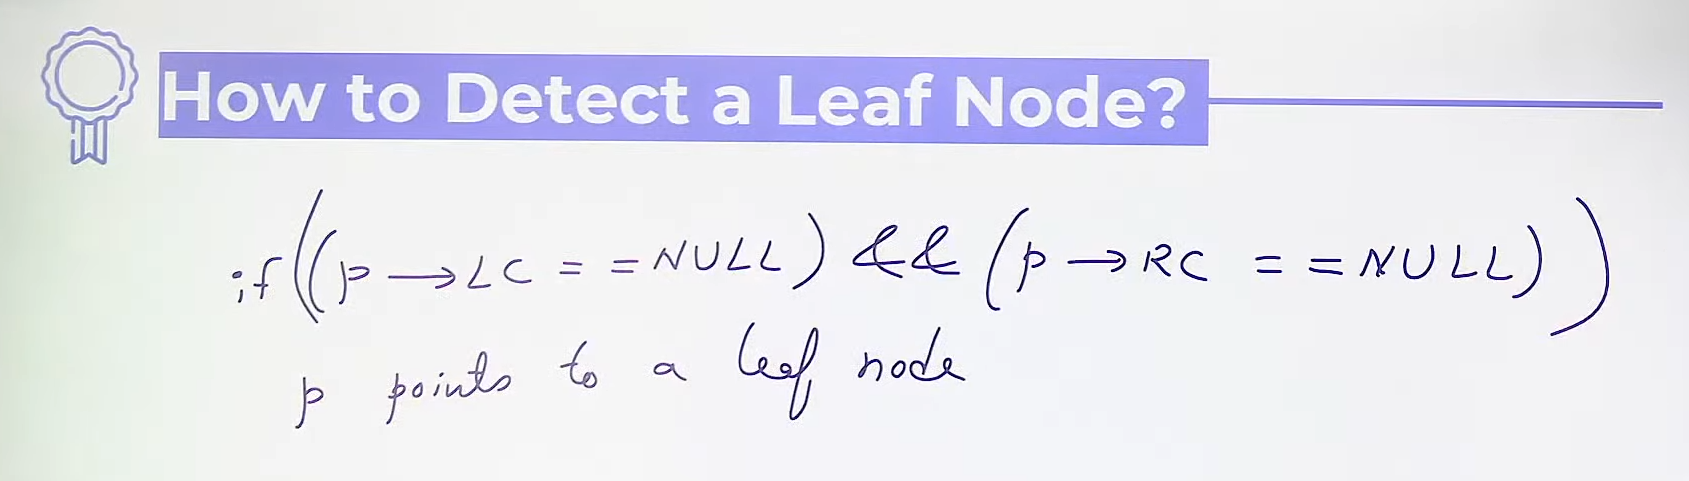 How to Detect a Leaf Node?
if((p→LC = =NULL) && (p→RC = =NULL))
p points to a leaf node